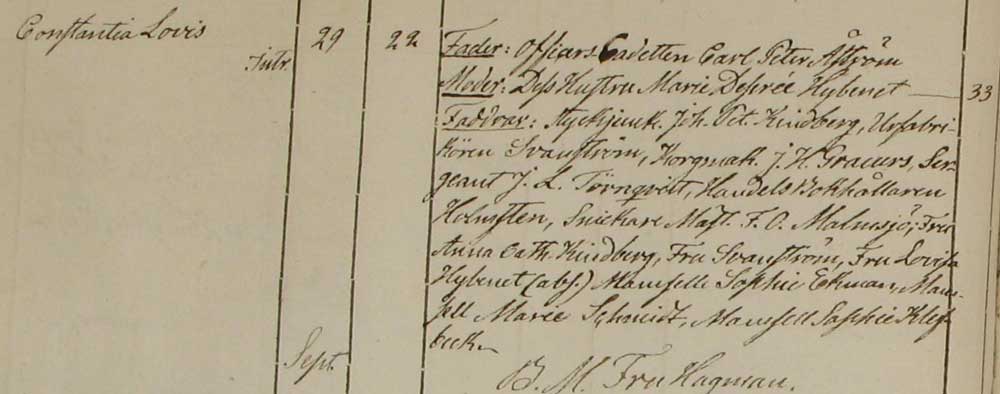 Constantia Lovis 29 22 Fader: Officers Cadetten Carl Peter Åström
Moder: Dess Hustru Marie Desirée Hybenet — 33
Faddrar: Joh. Pet. Kindberg, Urfabri-
kören Svanström, Korgmak. J. H. Grauers, Ser-
geant J. L. Törnqvist, Handels Bokhållaren
Holmsten, Snickare Mäst. F. O. Malmsjö; Fru
Anna Cath. Kindberg, Fru Svanström, Fru Lovisa
Hybenet (abs.) Mamsell Sophie Ekman, Mam-
sell Marie Schmidt, Mamsell Sophie Klef-
beck.
Sept.
B. M. Fru Hagman.